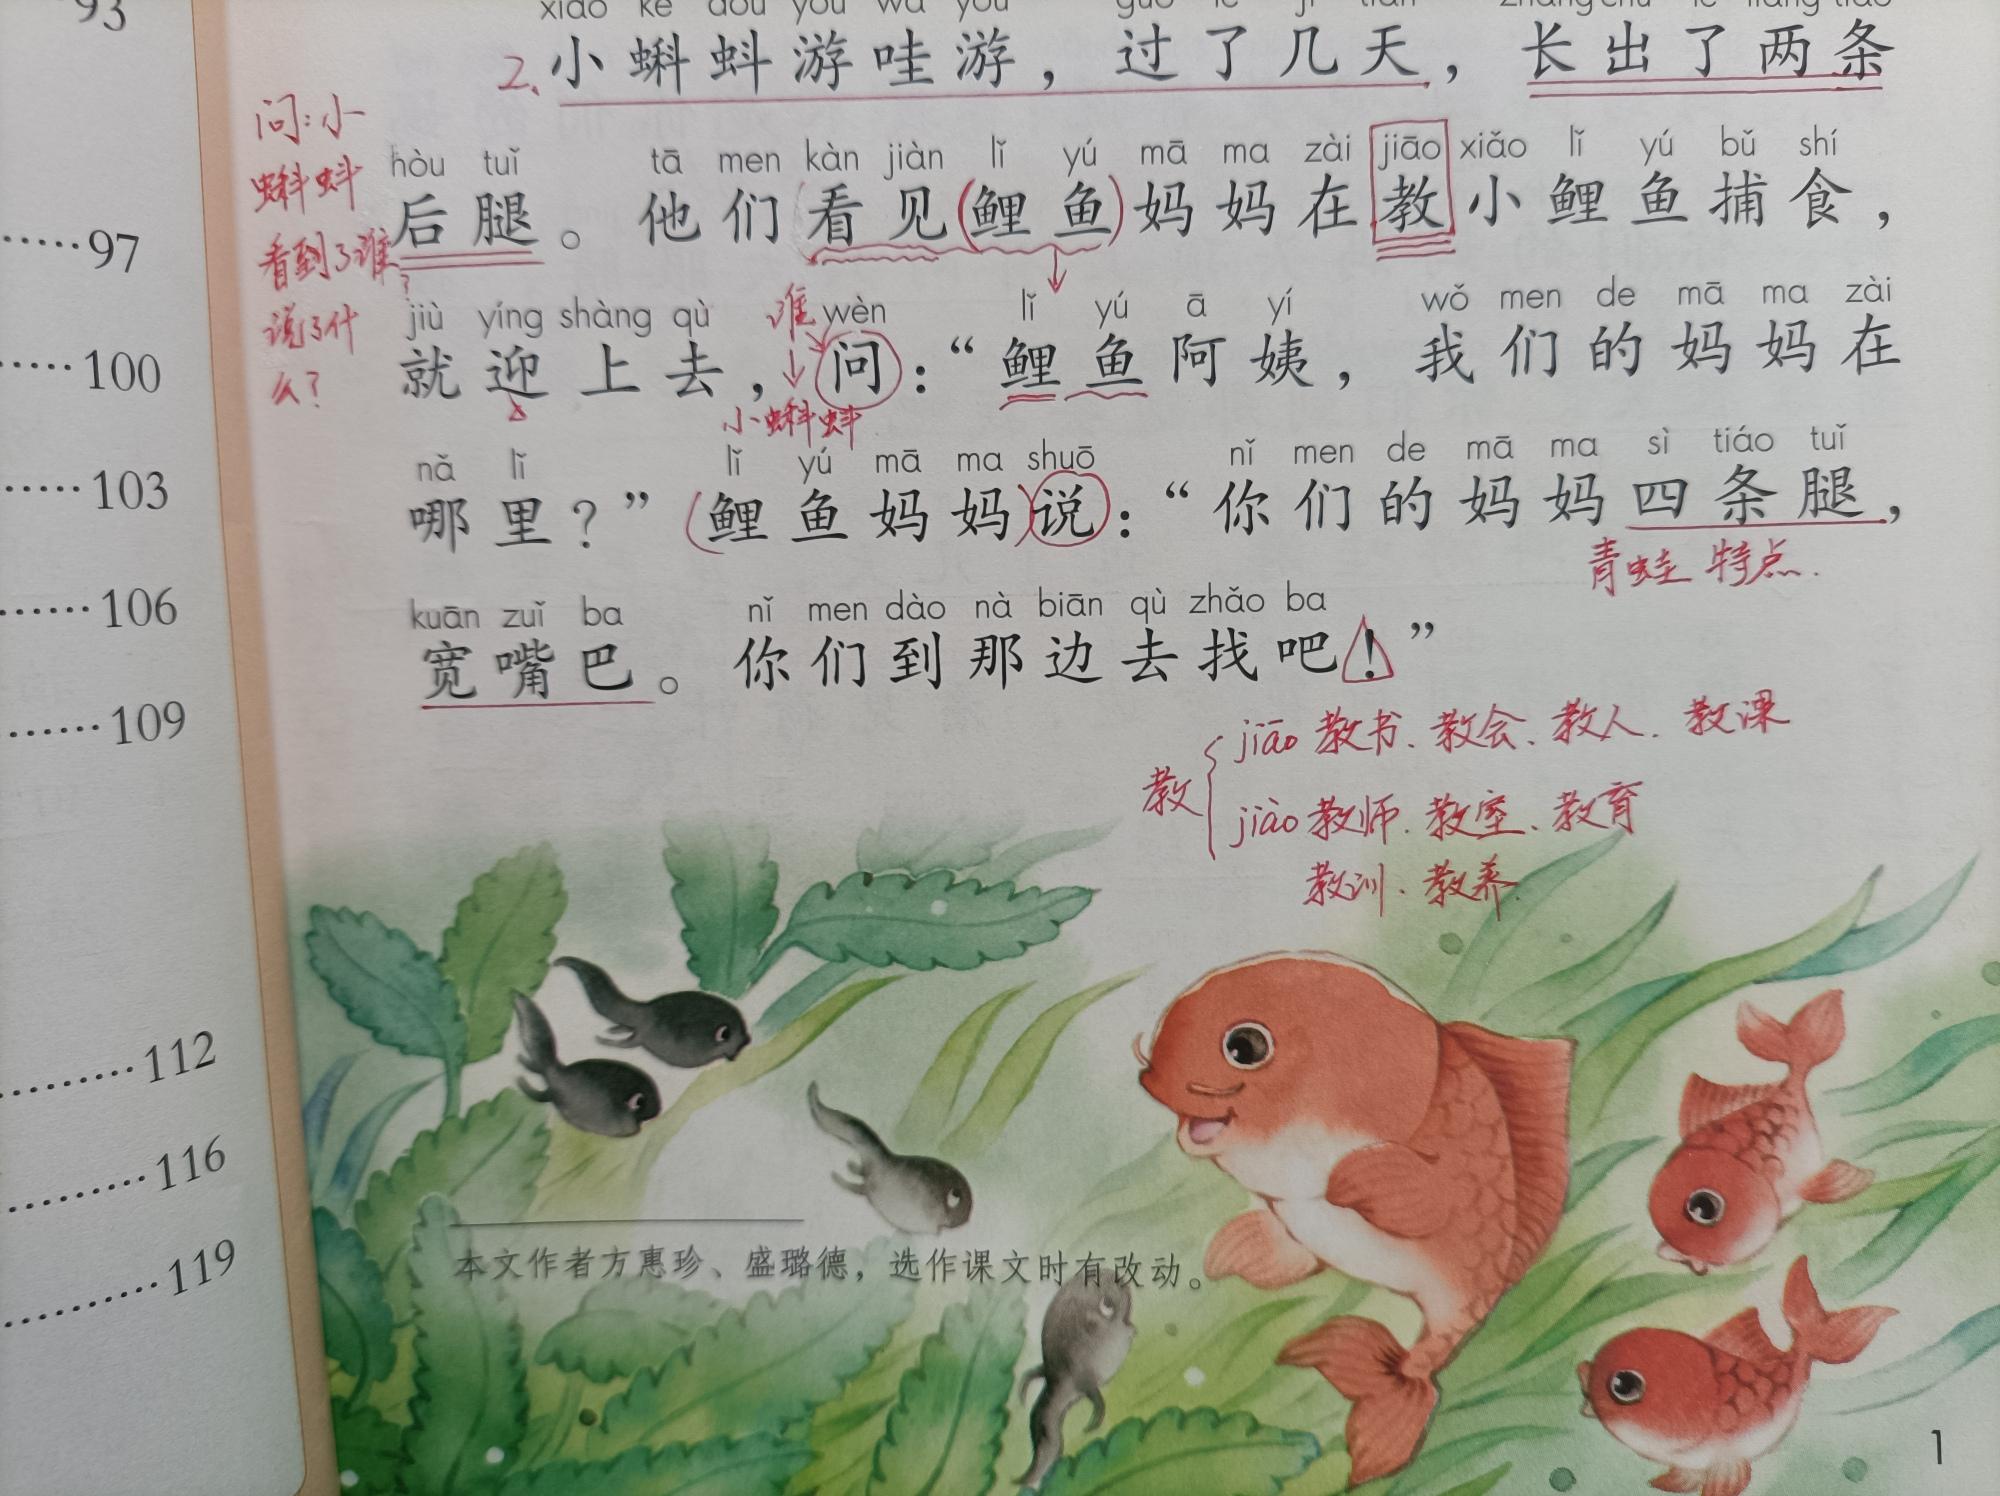 93
xiǎo kē dǒu yóu wa yóu guò le jǐ tiān zhǎng chū le liǎng tiáo
2. 小蝌蚪游哇游，过了几天，长出了两条
问:小
蝌蚪
看到了谁?
说了什
么?
hòu tuǐ tā men kàn jiàn lǐ yú mā ma zài jiāo xiǎo lǐ yú bǔ shí
后腿。他们看见(鲤鱼)妈妈在教小鲤鱼捕食，
jiù yíng shàng qù wèn lǐ yú ā yí wǒ men de mā ma zài
谁
就迎上去，问：“鲤鱼阿姨，我们的妈妈在
小蝌蚪
nǎ lǐ lǐ yú mā ma shuō nǐ men de mā ma sì tiáo tuǐ
哪里？”(鲤鱼妈妈)说：“你们的妈妈四条腿，
青蛙 特点.
kuān zuǐ ba nǐ men dào nà biān qù zhǎo ba
宽嘴巴。你们到那边去找吧！”
教 { jiāo 教书、教会、教人、教课
jiào 教师、教室、教育
教训、教养.
本文作者方惠珍、盛璐德，选作课文时有改动。
1
·····97
·····100
·····103
······106
······109
·········112
·········116
··········119